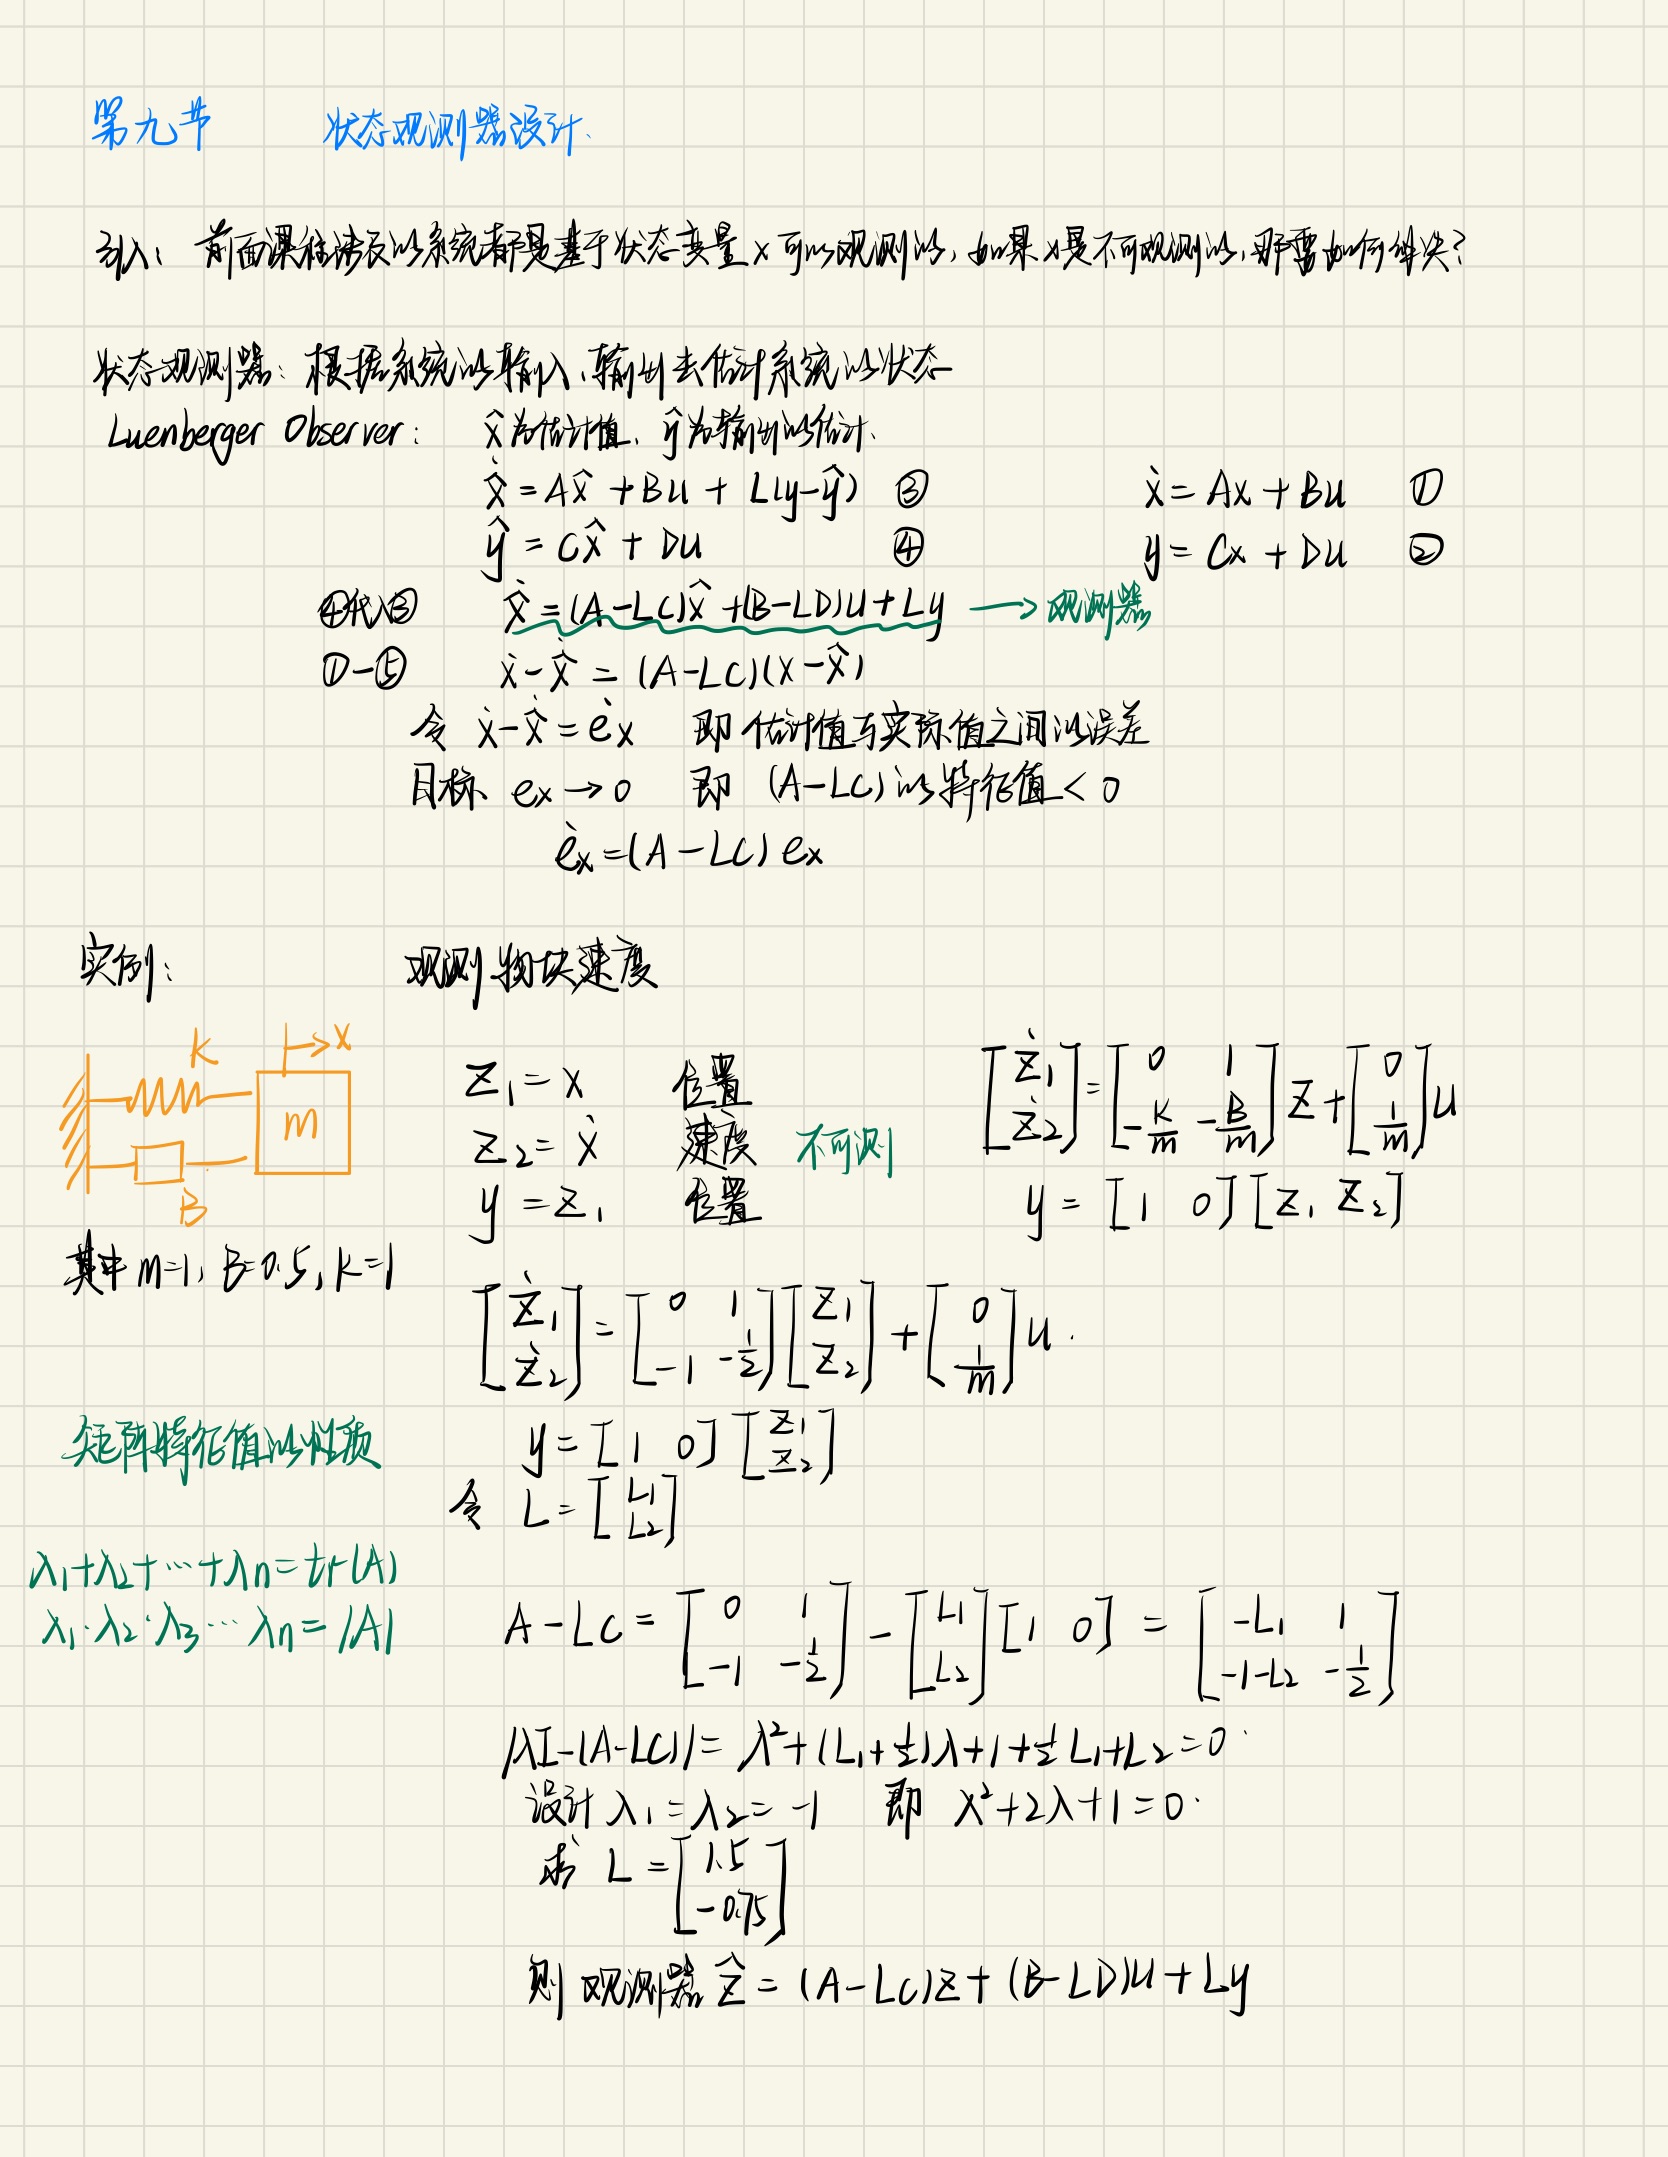 第九节 状态观测器设计.
引入: 前面课程涉及的系统都是基于状态变量x可以观测的, 如果x是不可观测的, 那要如何解决?
状态观测器: 根据系统的输入、输出去估计系统的状态
Luenberger Observer: x̂为估计值, ŷ为输出的估计.
x̂̇ = Ax̂ + Bu + L(y-ŷ) ③ ẋ = Ax + Bu ①
ŷ = Cx̂ + Du ④ y = Cx + Du ②
④代入③ x̂̇ = (A-LC)x̂ + (B-LD)u + Ly → 观测器
①-⑤ ẋ - x̂̇ = (A-LC)(x-x̂)
令 ẋ - x̂̇ = ėx 即 估计值与实际值之间的误差
目标 ex → 0 即 (A-LC)的特征值 < 0
ėx = (A-LC)ex
实例: 观测物块速度
K x
m
B
其中 m=1, B=0.5, K=1
z₁ = x 位置
z₂ = ẋ 速度 不可测
y = z₁ 位置
[ż₁; ż₂] = [0 1; -K/m -B/m] z + [0; 1/m] u
y = [1 0] [z₁ z₂]
[ż₁; ż₂] = [0 1; -1 -1/2] [z₁; z₂] + [0; 1/m] u.
y = [1 0] [z₁; z₂]
令 L = [L₁; L₂]
矩阵特征值的性质
λ₁+λ₂+…+λn = tr(A)
λ₁·λ₂·λ₃…λn = |A|
A-LC = [0 1; -1 -1/2] - [L₁; L₂] [1 0] = [-L₁ 1; -1-L₂ -1/2]
|λI-(A-LC)| = λ²+(L₁+1/2)λ+1+1/2L₁+L₂=0
设计 λ₁=λ₂=-1 即 λ²+2λ+1=0.
求 L = [1.5; -0.75]
则 观测器 ẑ = (A-LC)z + (B-LD)u + Ly